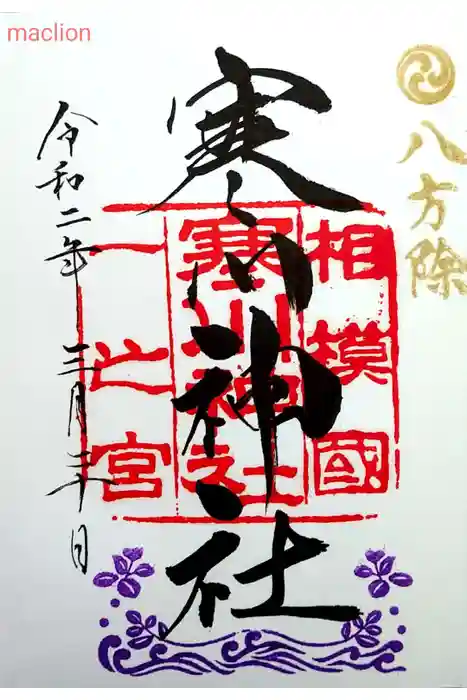 maclion
八方除
寒川神社
相模國
寒川神社
一之宮
令和二年三月 日